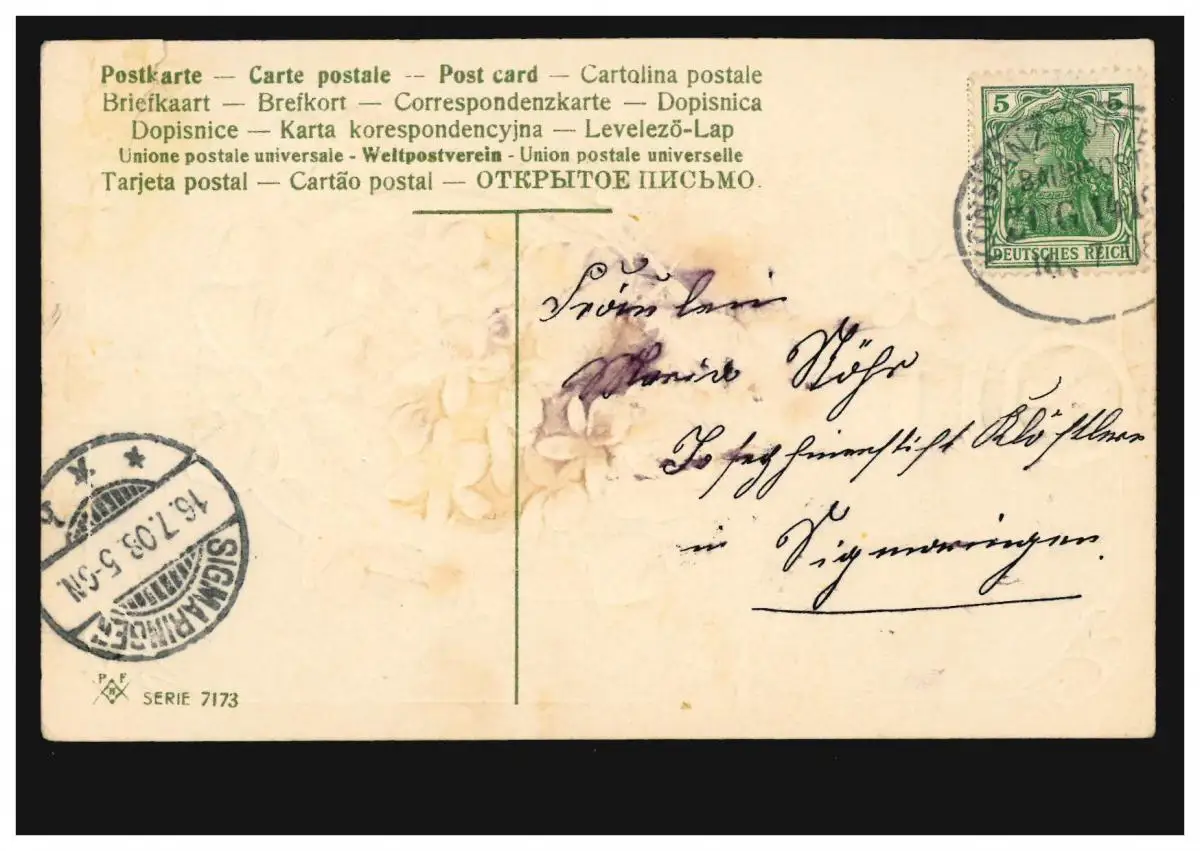 Postkarte — Carte postale -- Post card — Cartolina postale
Briefkaart — Brefkort — Correspondenzkarte — Dopisnica
Dopisnice — Karta korespondencyjna — Levelező-Lap
Unione postale universale - Weltpostverein - Union postale universelle
Tarjeta postal — Cartão postal — ОТКРЫТОЕ ПИСЬМО.
5 5
DEUTSCHES REICH
KONSTANZ
BAHNPOST
ZUG
16 7
Fräulein
Maria Stöhr
Josephinenstift Klösterle
in Sigmaringen.
16.7.08.5-6N.
SIGMARINGEN
P F
SERIE 7173